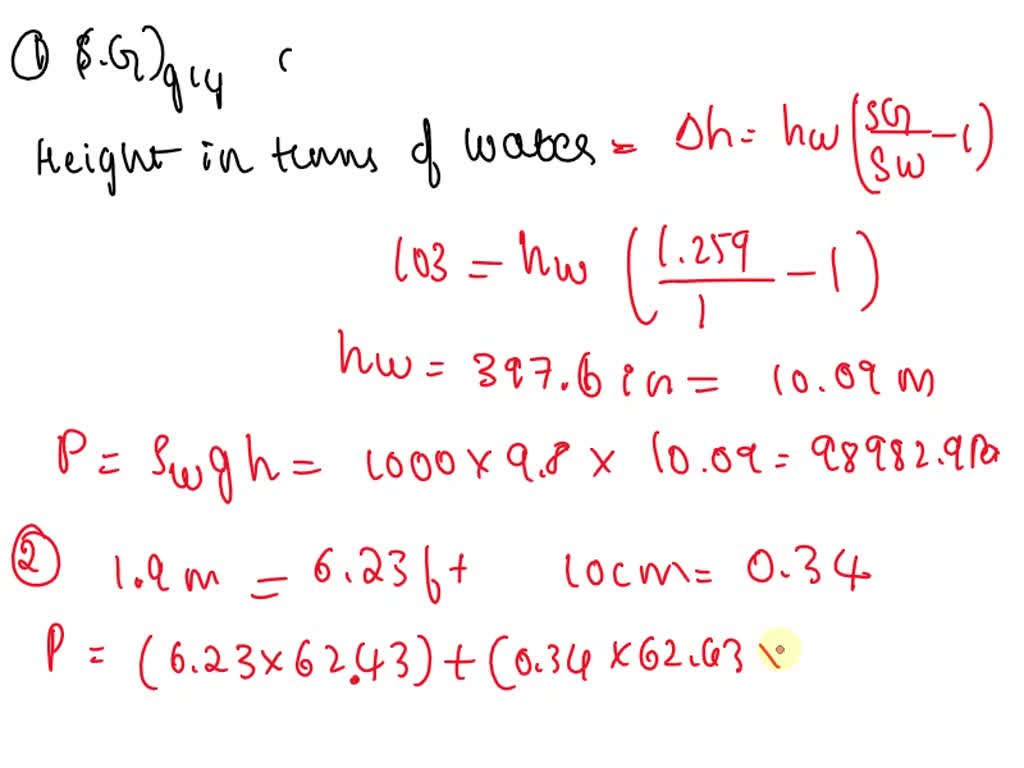 ① (S.G)gly (
Height in terms of water = Δh = hw (SG/Sw - 1)
103 = hw (1.259/1 - 1)
hw = 397.6 in = 10.09 m
P = Swgh = 1000 × 9.8 × 10.09 = 98982.9 Pa
② 1.9 m = 6.23 ft 10 cm = 0.34
P = (6.23 × 62.43) + (0.34 × 62.43 \